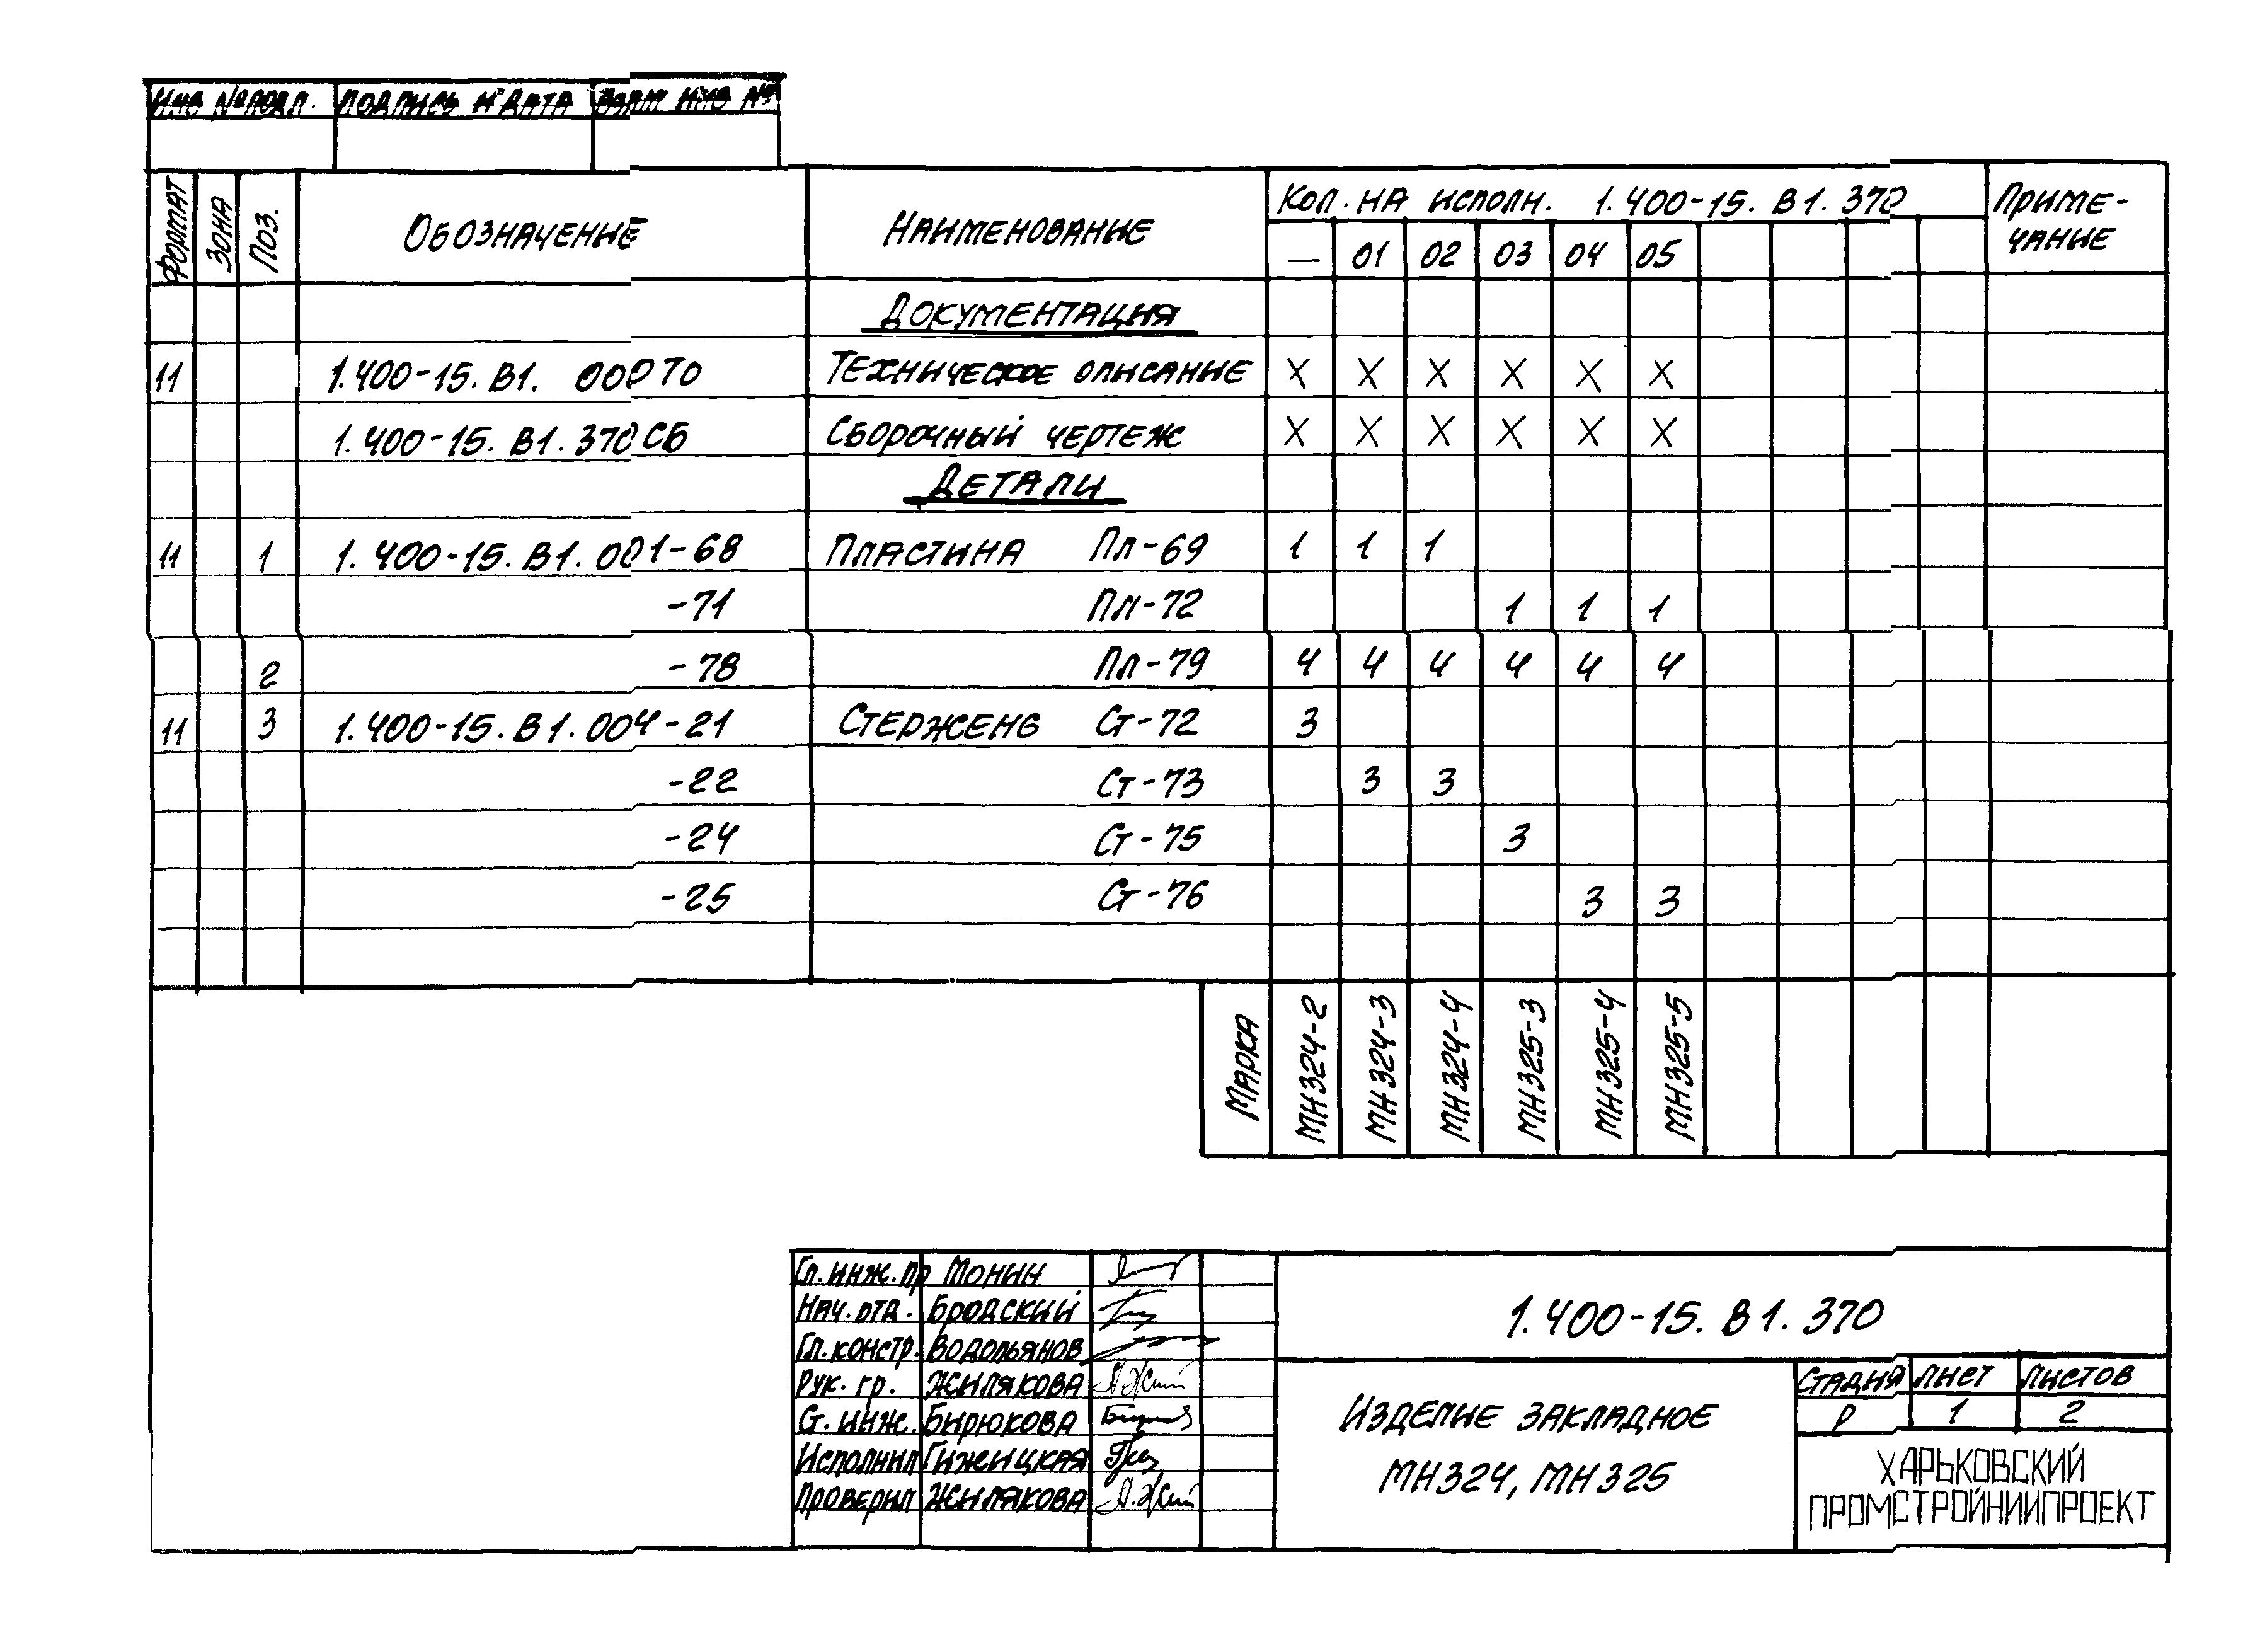 Инв № подл. Подпись и дата Взам инв №
Формат Зона Поз. Обозначение Наименование Кол. на исполн. 1.400-15.В1.370 Приме-
чание
— 01 02 03 04 05
Документация
11 1.400-15.В1. 000 ТО Техническое описание X X X X X X
1.400-15.В1.370 СБ Сборочный чертеж X X X X X X
Детали
11 1 1.400-15.В1.001-68 Пластина Пл-69 1 1 1
-71 Пл-72 1 1 1
2 -78 Пл-79 4 4 4 4 4 4
11 3 1.400-15.В1.004-21 Стержень Ст-72 3
-22 Ст-73 3 3
-24 Ст-75 3
-25 Ст-76 3 3
Марка МН324-2 МН324-3 МН324-4 МН325-3 МН325-4 МН325-5
Гл. инж. пр Монин
Нач. отд. Бродский
Гл. констр. Водопьянов
Рук. гр. Жилякова
Ст. инж. Бирюкова
Исполнил Гижицкая
Проверил Жилякова
1.400-15.В1.370
Изделие закладное
МН324, МН325
Стадия Лист Листов
Р 1 2
Харьковский
Промстройниипроект